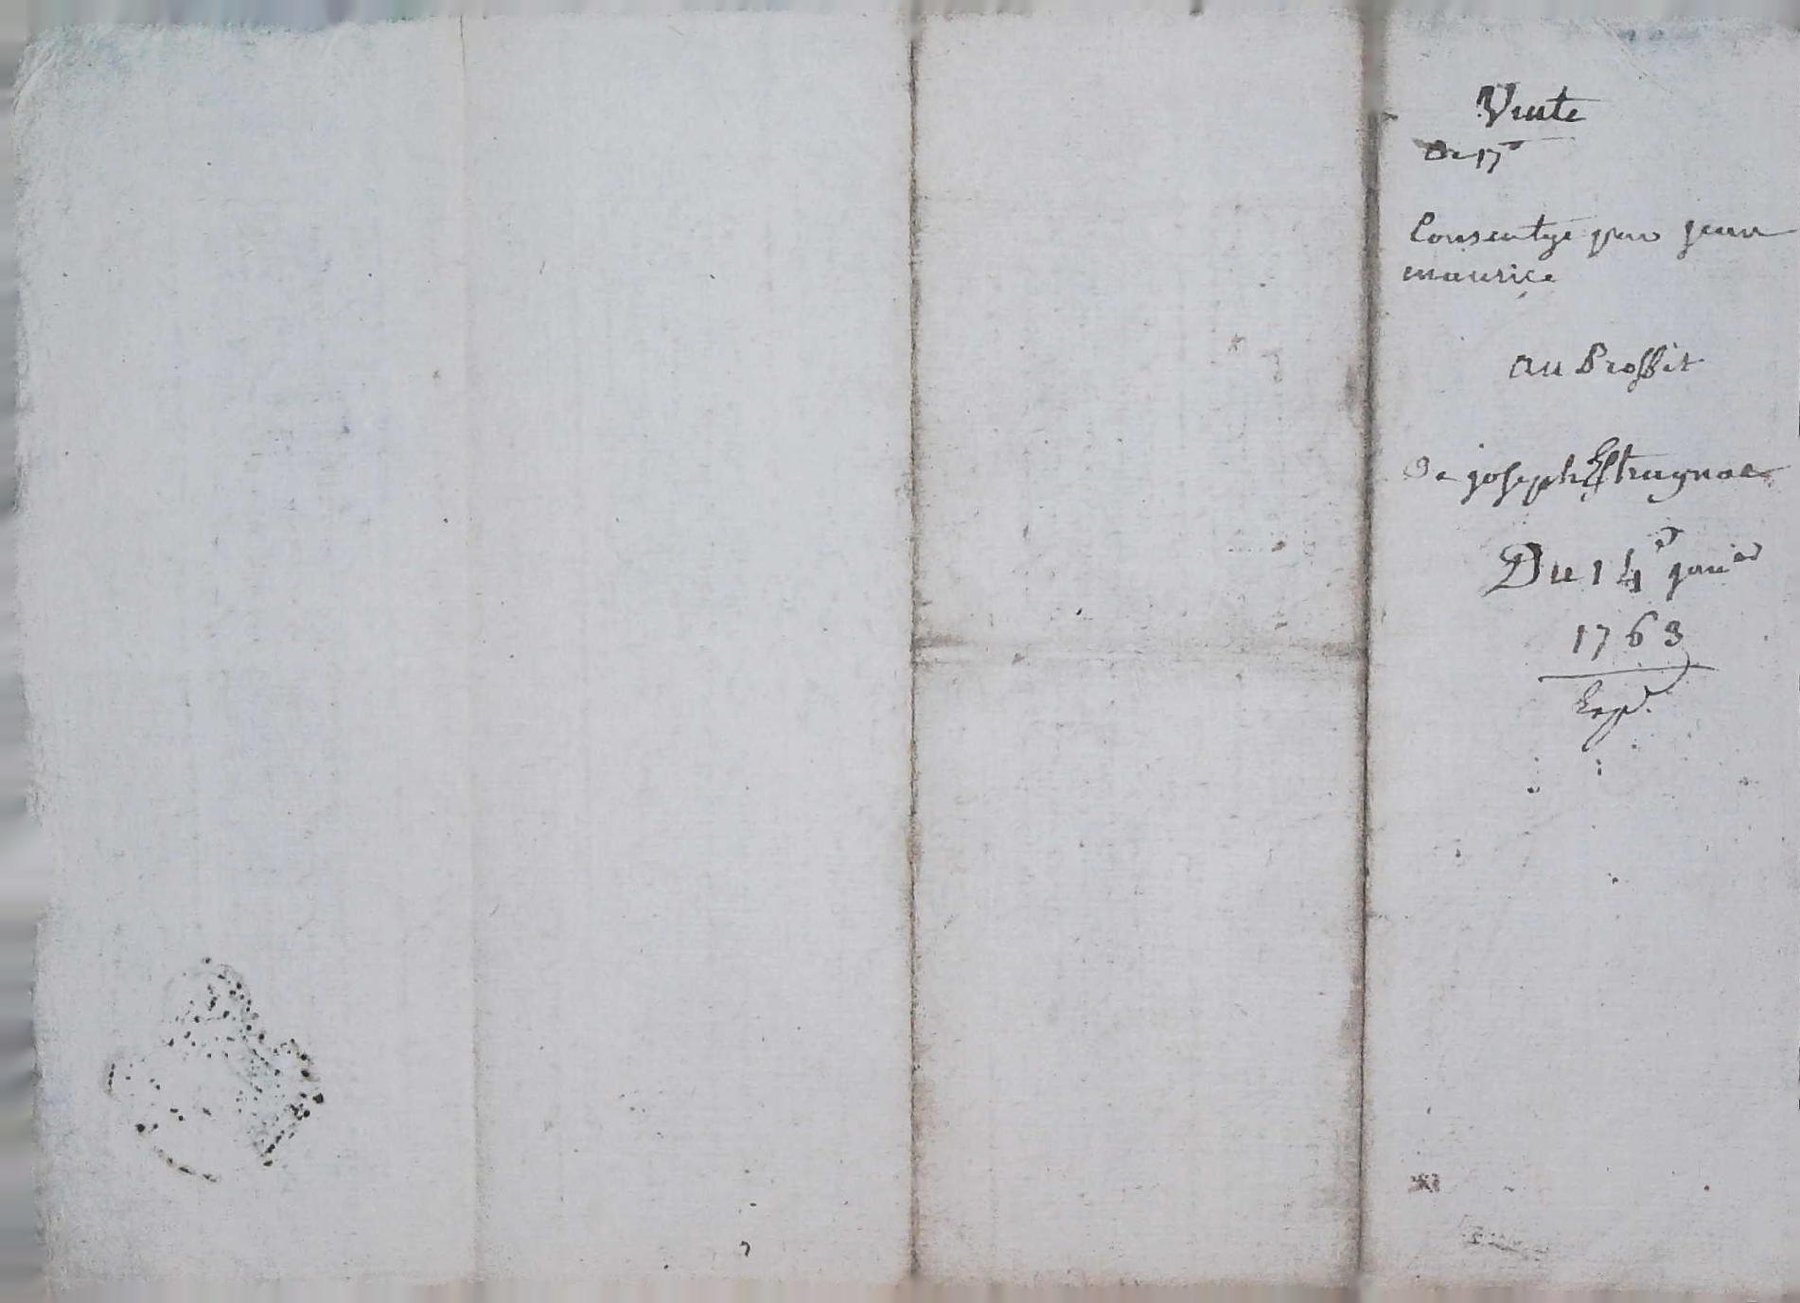 Vente
De 17
Consentye par jean
maurice
au Proffit
De joseph Estragnat
Du 14e janer
1763
Exp.